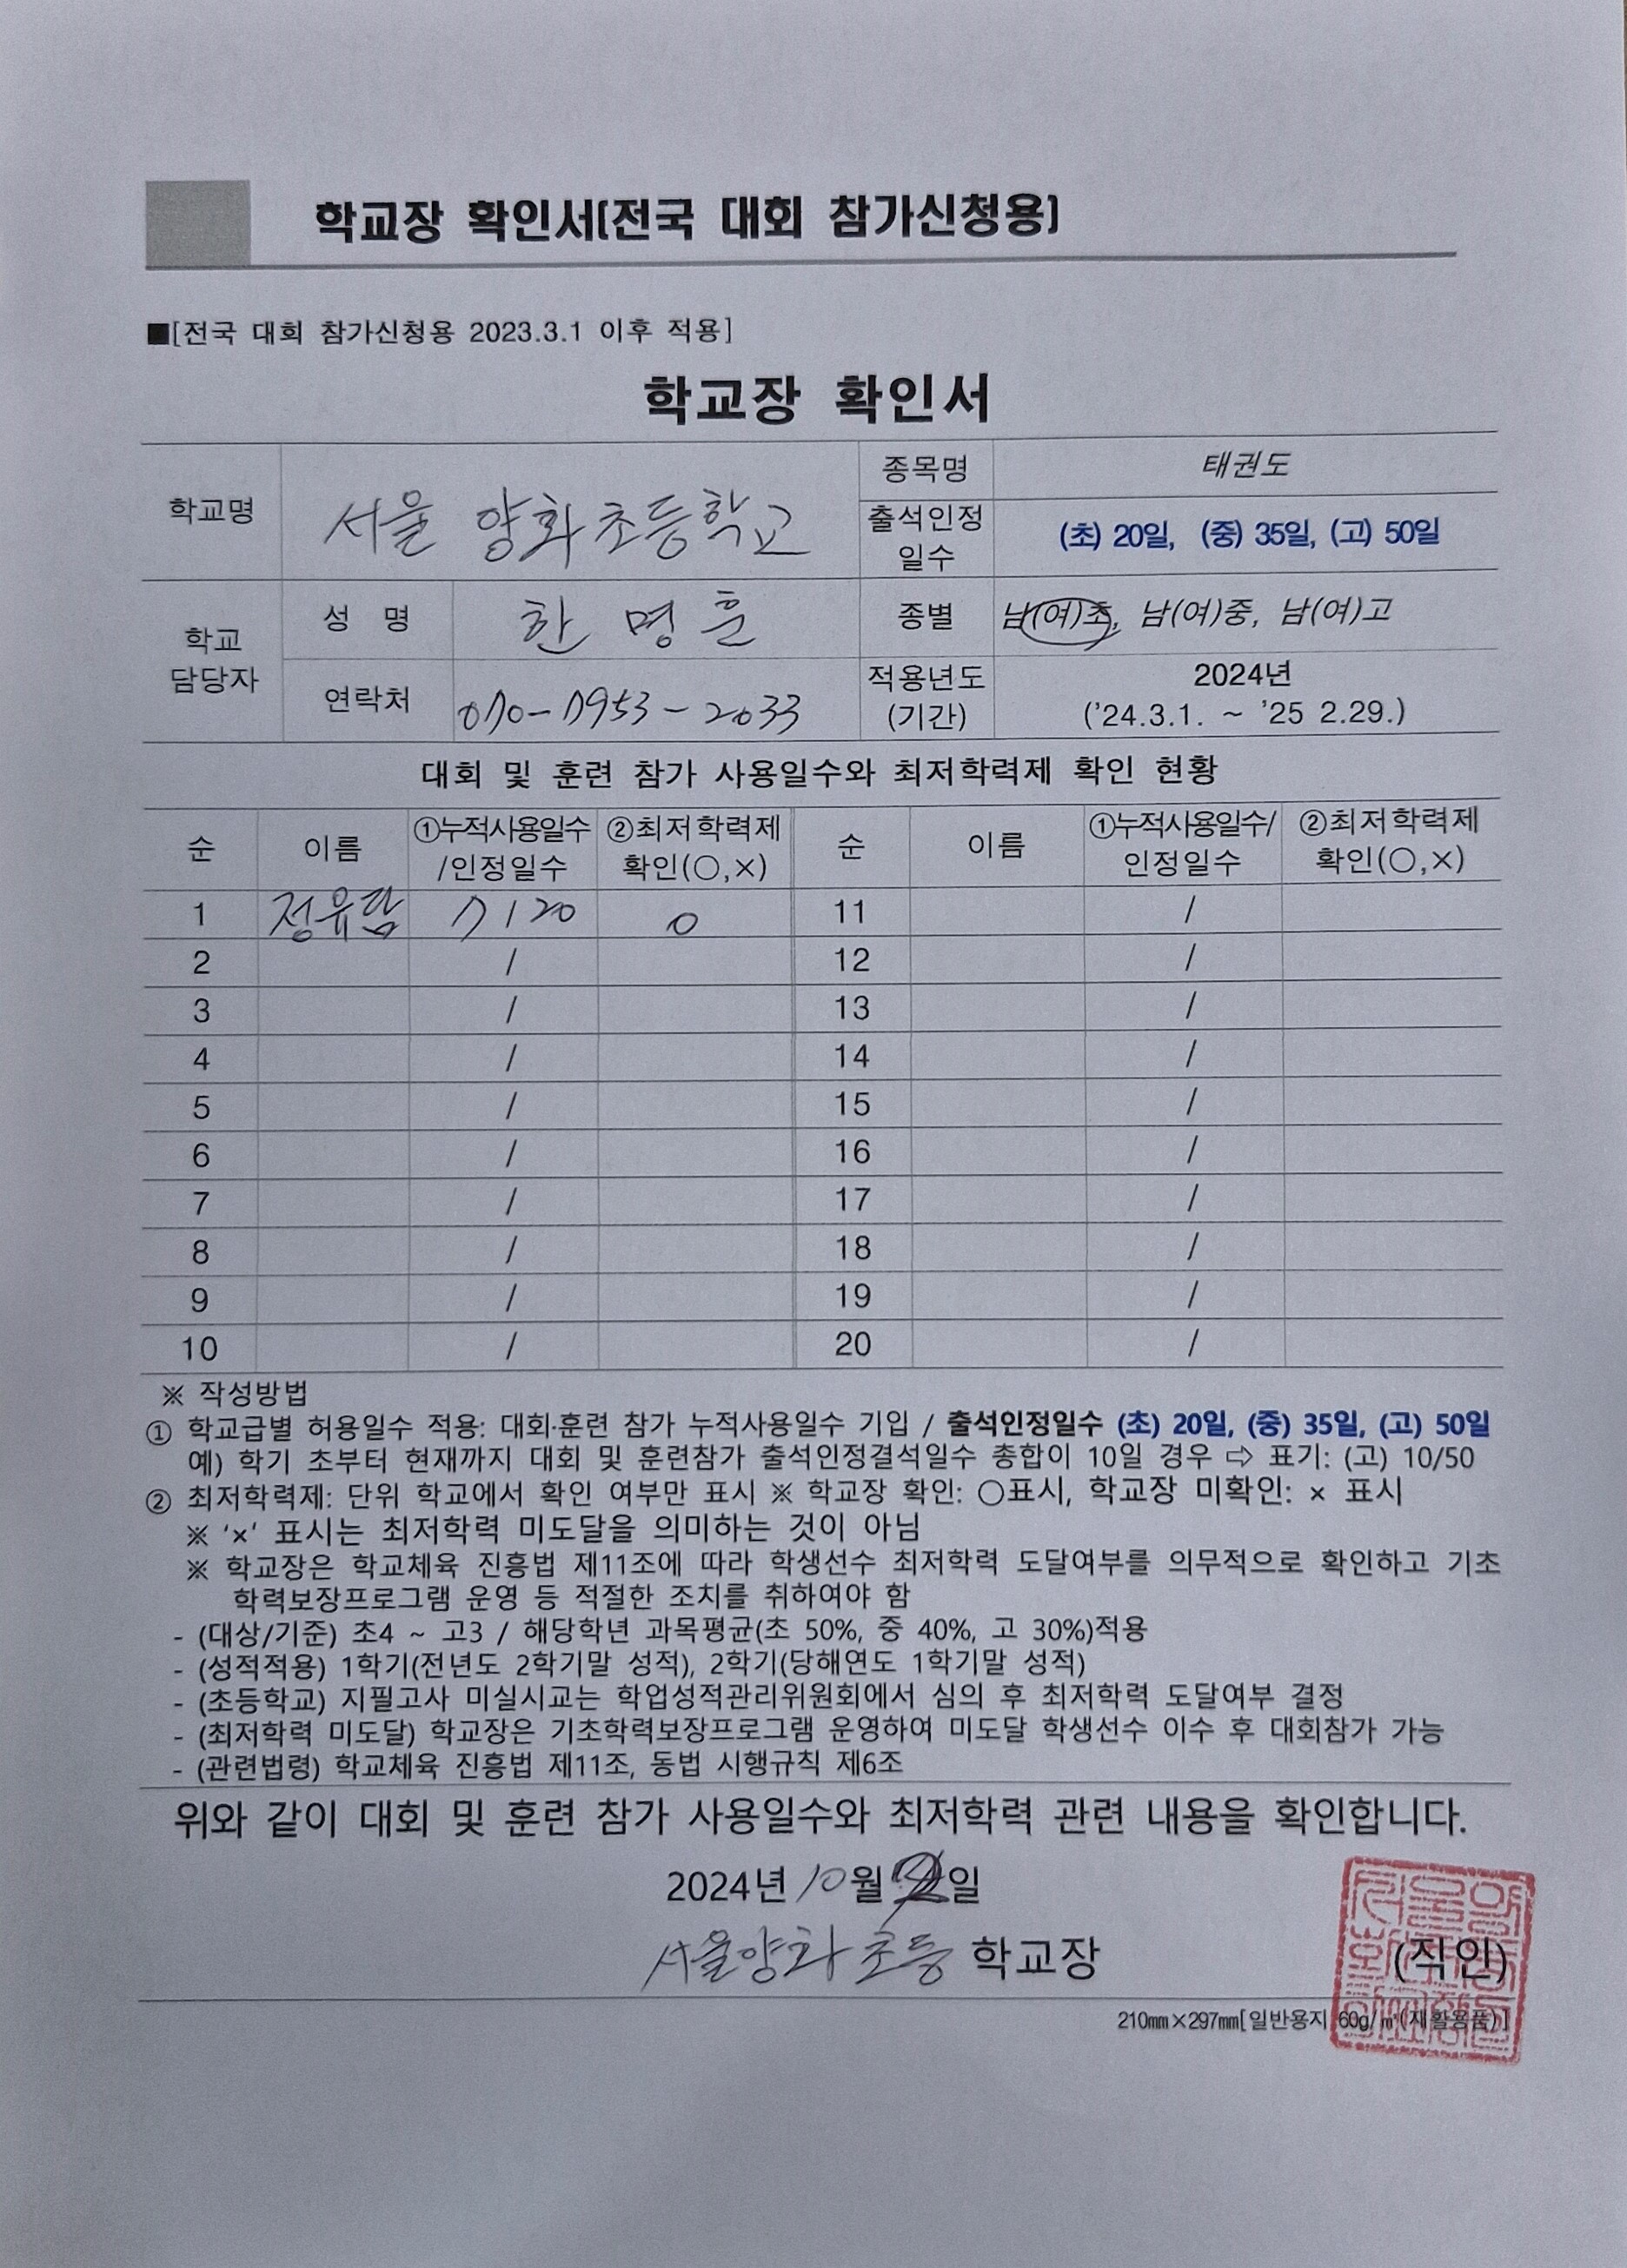 학교장 확인서(전국 대회 참가신청용)
■[전국 대회 참가신청용 2023.3.1 이후 적용]
학교장 확인서
학교명 서울 양화초등학교 종목명 태권도
출석인정 일수 (초) 20일, (중) 35일, (고) 50일
학교 담당자 성 명 한 명 훈 종별 남(여)초, 남(여)중, 남(여)고
연락처 070-7953-2033 적용년도 (기간) 2024년 ('24.3.1. ~ '25 2.29.)
대회 및 훈련 참가 사용일수와 최저학력제 확인 현황
순 이름 ①누적사용일수/인정일수 ②최저학력제 확인(○,×) 순 이름 ①누적사용일수/인정일수 ②최저학력제 확인(○,×)
1 정유담 7/20 ○ 11 /
2 / 12 /
3 / 13 /
4 / 14 /
5 / 15 /
6 / 16 /
7 / 17 /
8 / 18 /
9 / 19 /
10 / 20 /
※ 작성방법
① 학교급별 허용일수 적용: 대회·훈련 참가 누적사용일수 기입 / 출석인정일수 (초) 20일, (중) 35일, (고) 50일
예) 학기 초부터 현재까지 대회 및 훈련참가 출석인정결석일수 총합이 10일 경우 ⇨ 표기: (고) 10/50
② 최저학력제: 단위 학교에서 확인 여부만 표시 ※ 학교장 확인: ○표시, 학교장 미확인: × 표시
※ '×' 표시는 최저학력 미도달을 의미하는 것이 아님
※ 학교장은 학교체육 진흥법 제11조에 따라 학생선수 최저학력 도달여부를 의무적으로 확인하고 기초
학력보장프로그램 운영 등 적절한 조치를 취하여야 함
- (대상/기준) 초4 ~ 고3 / 해당학년 과목평균(초 50%, 중 40%, 고 30%)적용
- (성적적용) 1학기(전년도 2학기말 성적), 2학기(당해연도 1학기말 성적)
- (초등학교) 지필고사 미실시교는 학업성적관리위원회에서 심의 후 최저학력 도달여부 결정
- (최저학력 미도달) 학교장은 기초학력보장프로그램 운영하여 미도달 학생선수 이수 후 대회참가 가능
- (관련법령) 학교체육 진흥법 제11조, 동법 시행규칙 제6조
위와 같이 대회 및 훈련 참가 사용일수와 최저학력 관련 내용을 확인합니다.
2024년 10월 일
서울양화초등 학교장 (직인)
210㎜×297㎜[일반용지 60g/㎡(재활용품)]